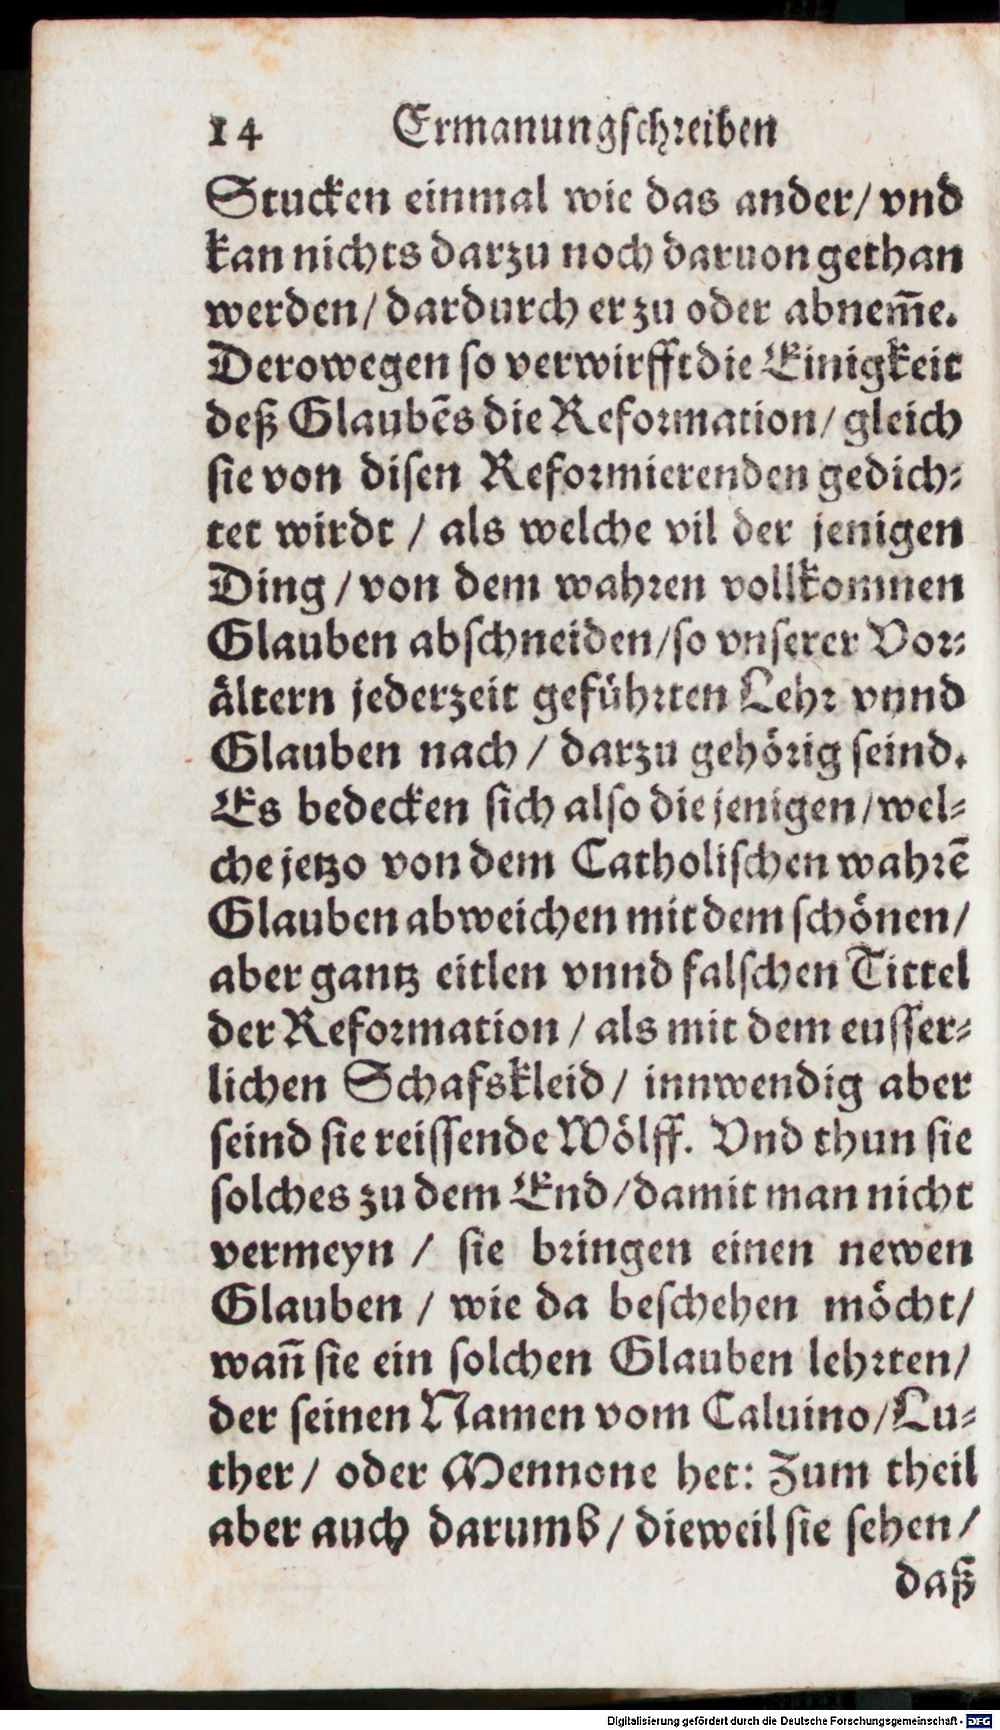 14 Ermanungschreiben
Stucken einmal wie das ander/ vnd
kan nichts darzu noch daruon gethan
werden/ dardurch er zu oder abnem̃e.
Derowegen so verwirfft die Einigkeit
deß Glaubẽs die Reformation/ gleich
sie von disen Reformierenden gedich⸗
tet wirdt / als welche vil der jenigen
Ding / von dem wahren vollkomnen
Glauben abschneiden/so vnserer Vor⸗
ältern jederzeit geführten Lehr vnnd
Glauben nach / darzu gehörig seind.
Es bedecken sich also die jenigen/wel⸗
che jetzo von dem Catholischen wahrẽ
Glauben abweichen mit dem schönen/
aber gantz eitlen vnnd falschen Tittel
der Reformation / als mit dem eusser⸗
lichen Schafskleid/ innwendig aber
seind sie reissende Wölff. Vnd thun sie
solches zu dem End/damit man nicht
vermeyn / sie bringen einen newen
Glauben / wie da beschehen möcht/
wañ sie ein solchen Glauben lehrten/
der seinen Namen vom Caluino/Lu⸗
ther/ oder Mennone het: Zum theil
aber auch darumb/ dieweil sie sehen/
daß
Digitalisierung gefördert durch die Deutsche Forschungsgemeinschaft - DFG